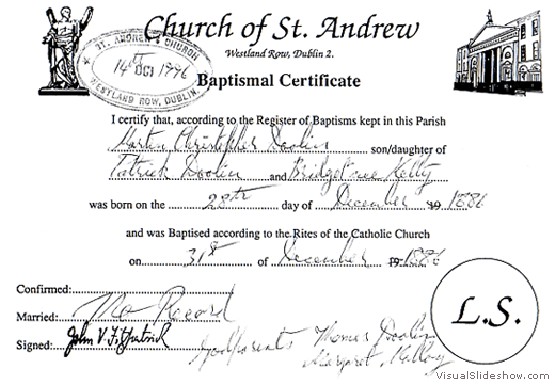 Church of St. Andrew
Westland Row, Dublin 2.
ST. ANDREW'S CHURCH
14th OCT 1996
WESTLAND ROW, DUBLIN.
Baptismal Certificate
I certify that, according to the Register of Baptisms kept in this Parish
Martin Christopher Doolin son/daughter of
Patrick Doolin and Bridget nee Kelly
was born on the 28th day of December 19 1886
and was Baptised according to the Rites of the Catholic Church
on 31st of December 19 1886
Confirmed:
Married: No Record
Signed: John V Fitzpatrick
Godparents Thomas Doolin
Margaret Kelly
L.S.
VisualSlideshow.com